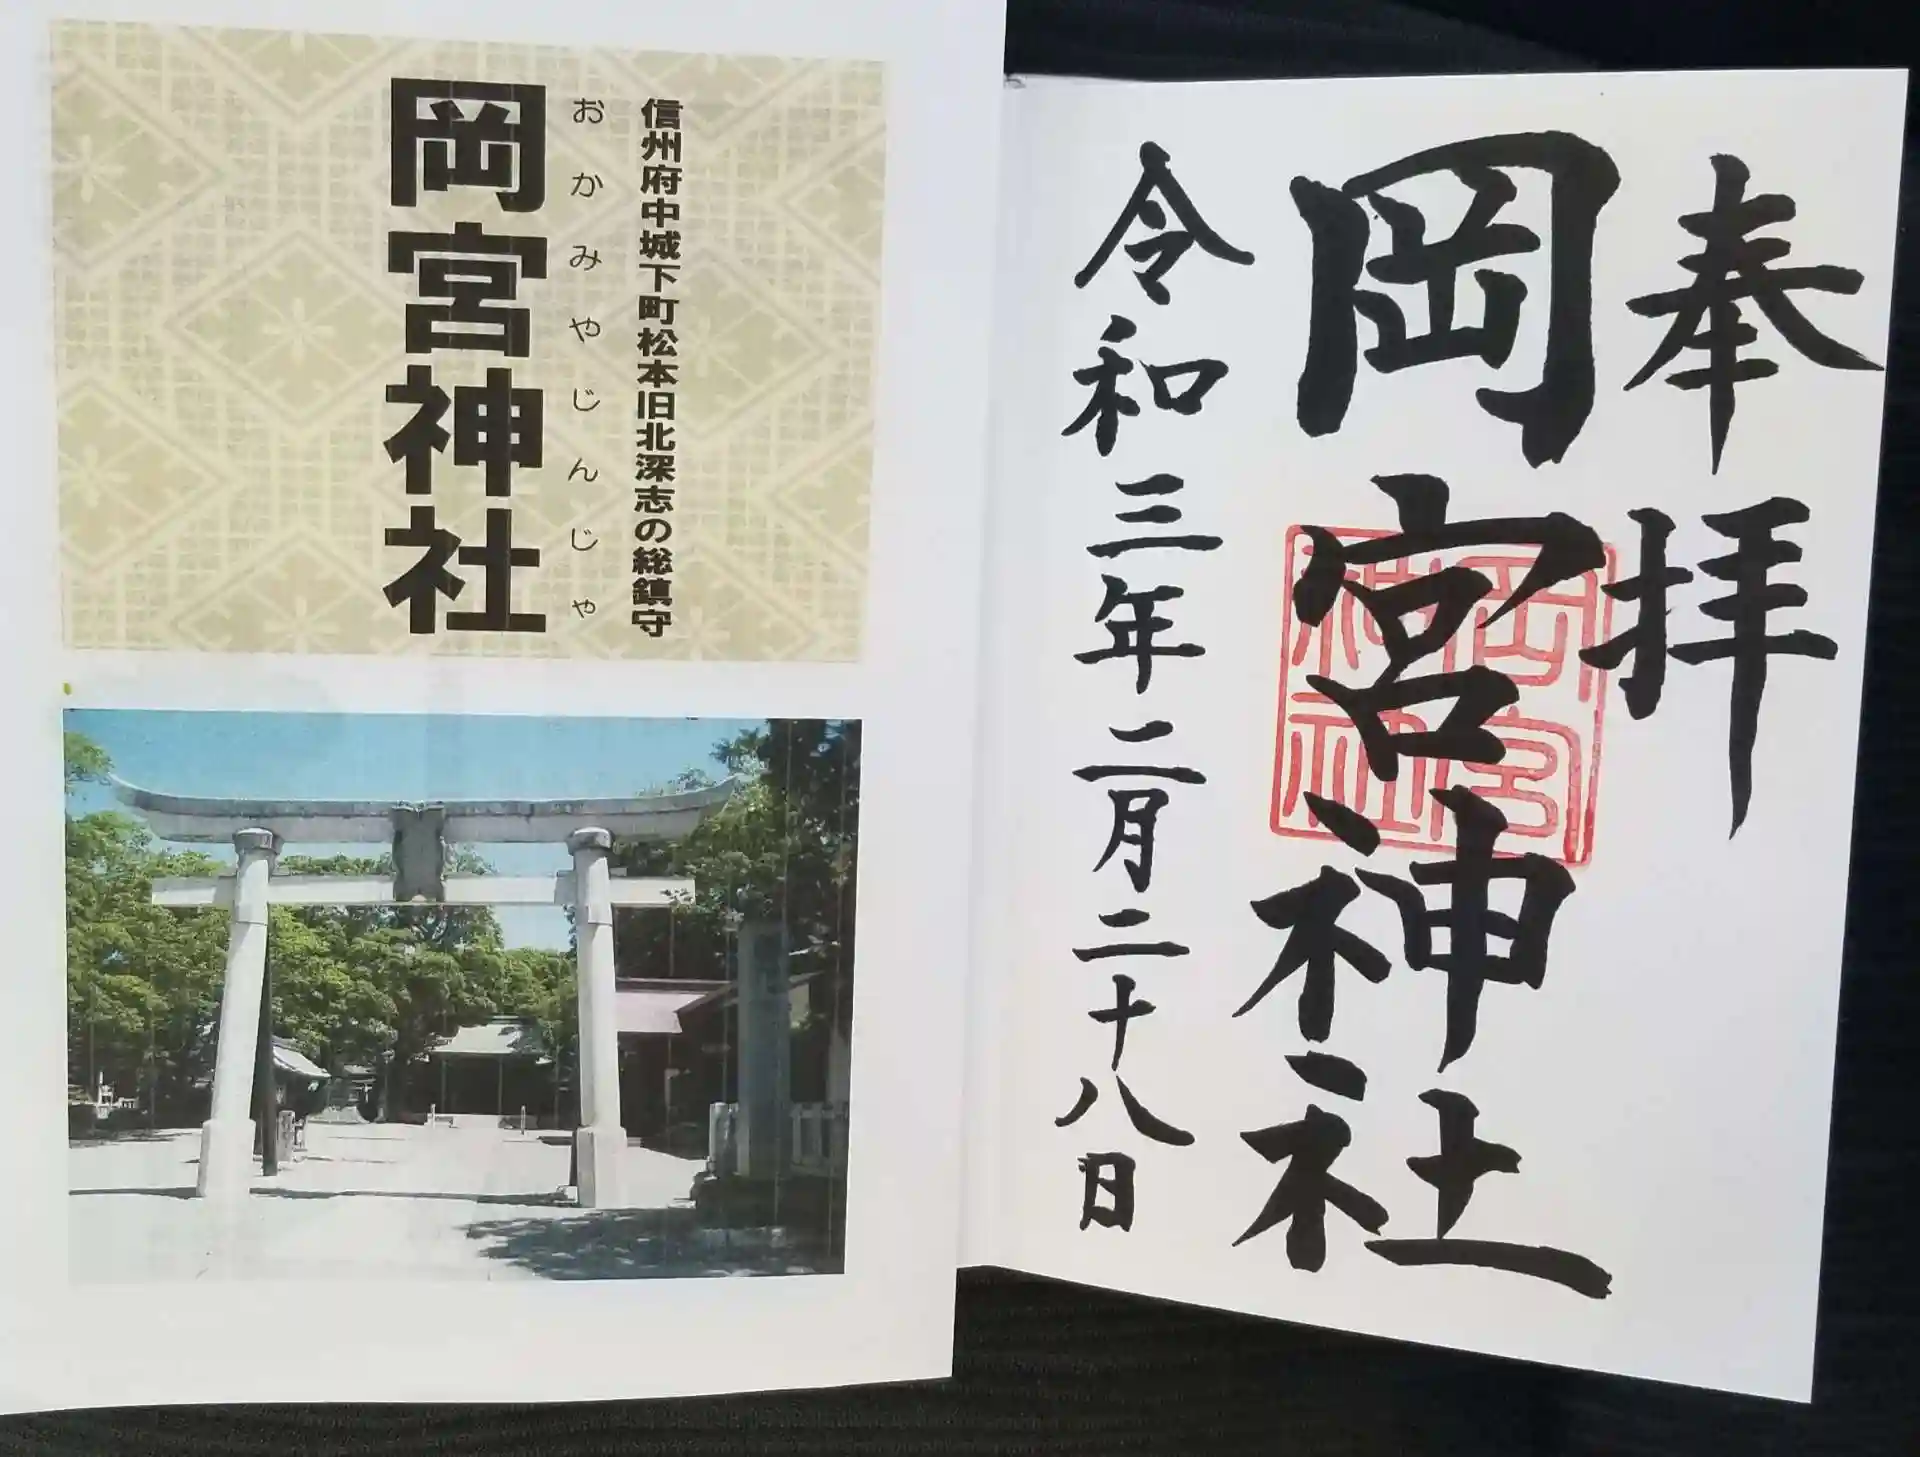 信州府中城下町松本旧北深志の総鎮守
おかみやじんじゃ
岡宮神社
奉拝
岡宮神社
岡宮
神社
令和三年二月二十八日